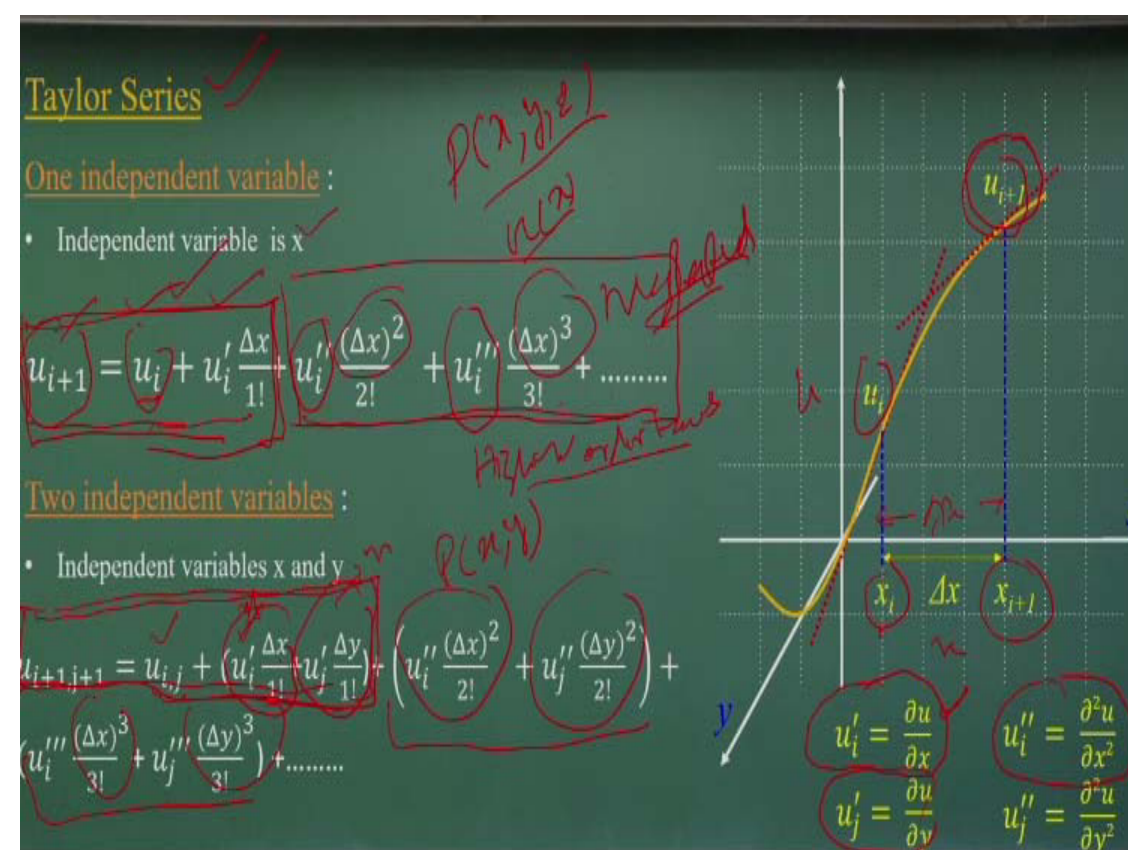 Taylor Series
P(x, y, z)
One independent variable :
u(x)
• Independent variable is x
Neglected
u_{i+1} = u_i + u_i' \frac{Δx}{1!} + u_i'' \frac{(Δx)^2}{2!} + u_i''' \frac{(Δx)^3}{3!} + .........
Higher order terms
Two independent variables :
P(x, y)
• Independent variables x and y
u_{i+1,j+1} = u_{i,j} + (u_i' \frac{Δx}{1!} + u_j' \frac{Δy}{1!}) + (u_i'' \frac{(Δx)^2}{2!} + u_j'' \frac{(Δy)^2}{2!}) +
(u_i''' \frac{(Δx)^3}{3!} + u_j''' \frac{(Δy)^3}{3!}) + .........
u_{i+1}
u
u_i
Δx
x_i Δx x_{i+1}
x
y
u_i' = \frac{∂u}{∂x} u_i'' = \frac{∂^2u}{∂x^2}
u_j' = \frac{∂u}{∂y} u_j'' = \frac{∂^2u}{∂y^2}